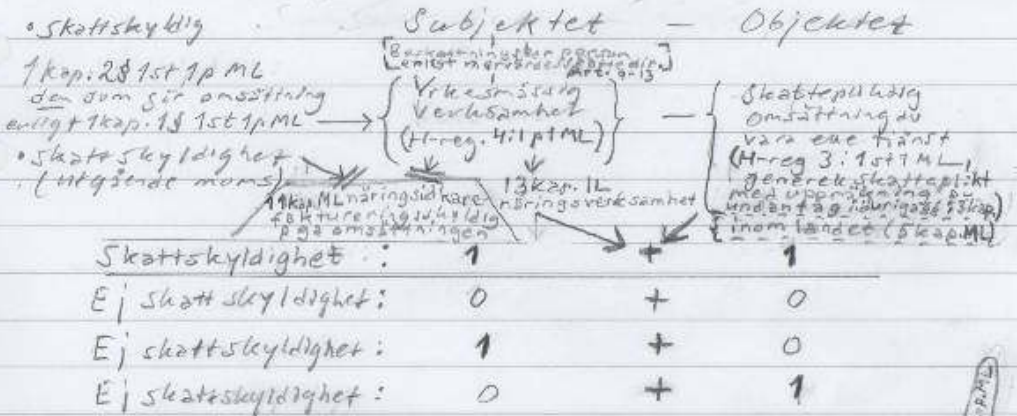 • Skattskyldig Subjektet – Objektet
[Beskattningsbar person
enligt mervärdesskattedir.
Art. 9-13]
1 kap. 2§ 1st 1p ML
den som gör omsättning
enligt 1kap. 1§ 1st 1p ML → {Yrkesmässig
verksamhet
(H-reg. 4:1 p 1 ML)} –
{Skattepliktig
omsättning av
vara eller tjänst
(H-reg 3:1 st 1 ML,
generell skatteplikt
med uppräkning av
undantag i övriga 3 kap.)
{inom landet (5 kap. ML)
• skattskyldighet
(utgående moms)
11 kap. ML näringsidkare
faktureringsskyldig
pga omsättningen
13 kap. IL
näringsverksamhet
Skattskyldighet : 1 + 1
Ej skattskyldighet : 0 + 0
Ej skattskyldighet : 1 + 0
Ej skattskyldighet : 0 + 1